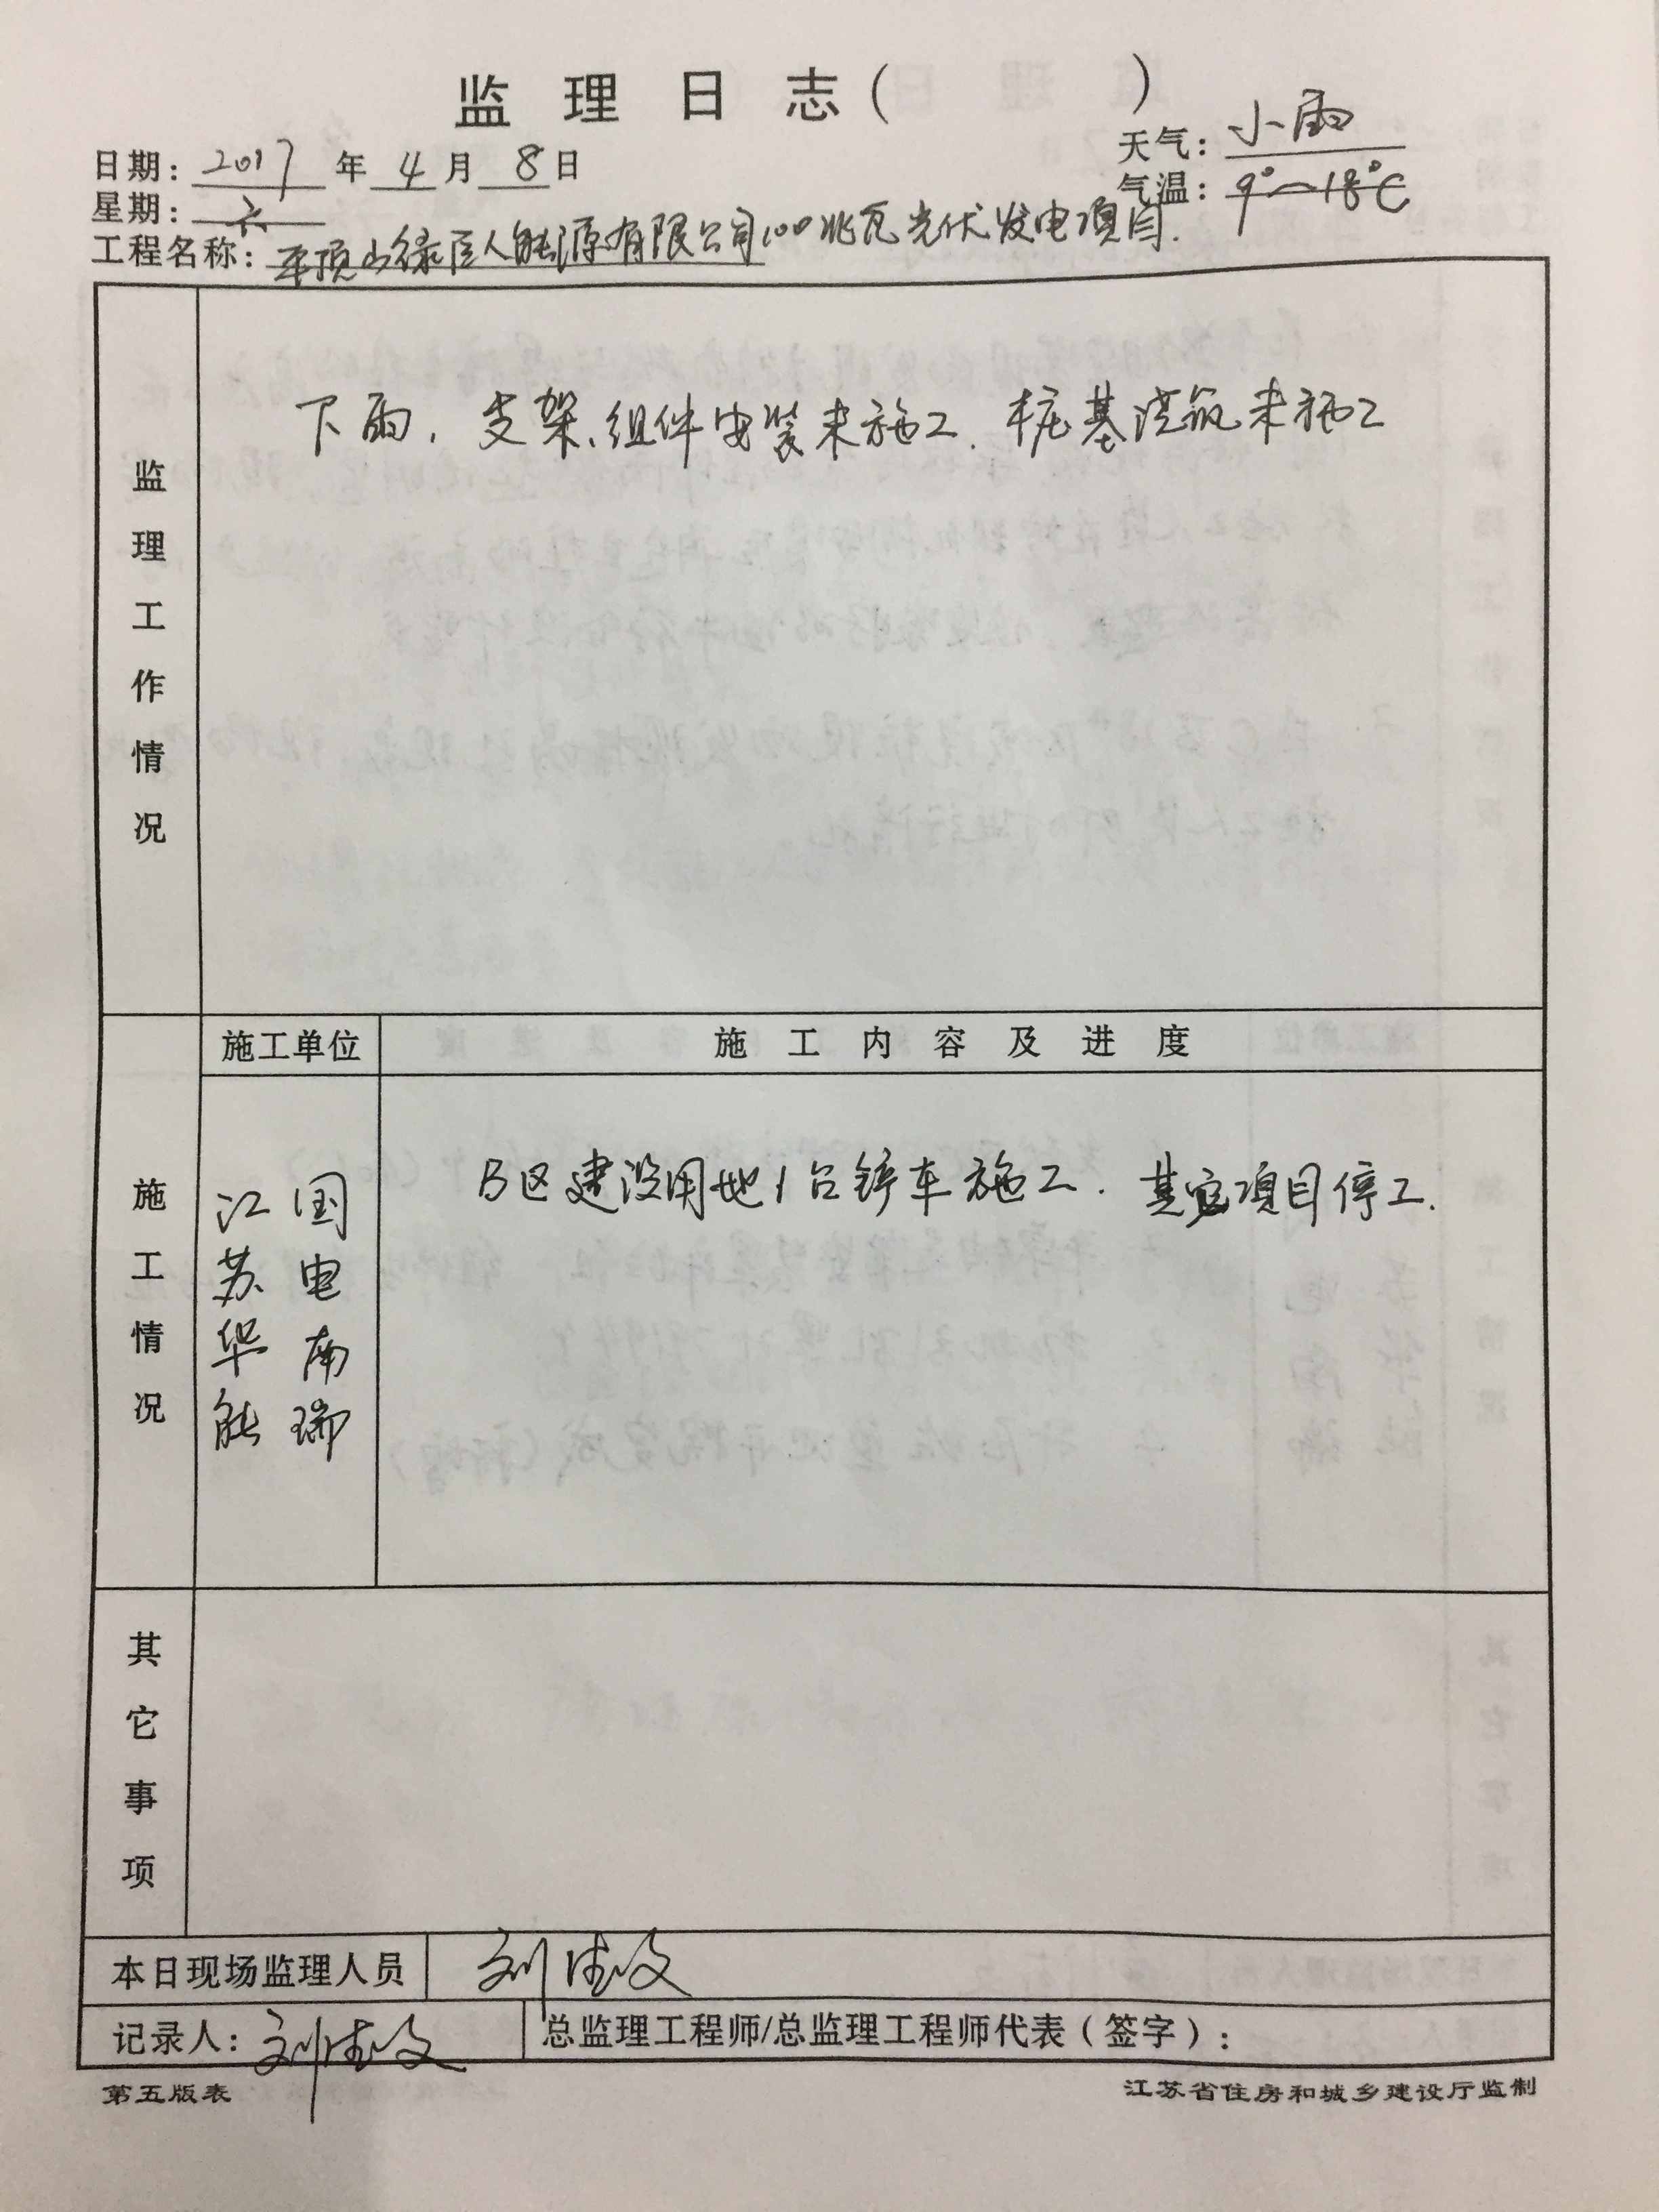 监理日志（ ）
日期：2017年4月8日
天气：小雨
星期：六
气温：9°—18℃
工程名称：平顶山绿巨人能源有限公司100兆瓦光伏发电项目.
监理工作情况
下雨，支架、组件安装未施工．桩基浇筑未施工
施工单位
施工内容及进度
施工情况
江苏华能
国电南瑞
B区建设用地1台铲车施工．其它项目停工.
其它事项
本日现场监理人员
刘
记录人：刘
总监理工程师/总监理工程师代表（签字）：
第五版表
江苏省住房和城乡建设厅监制